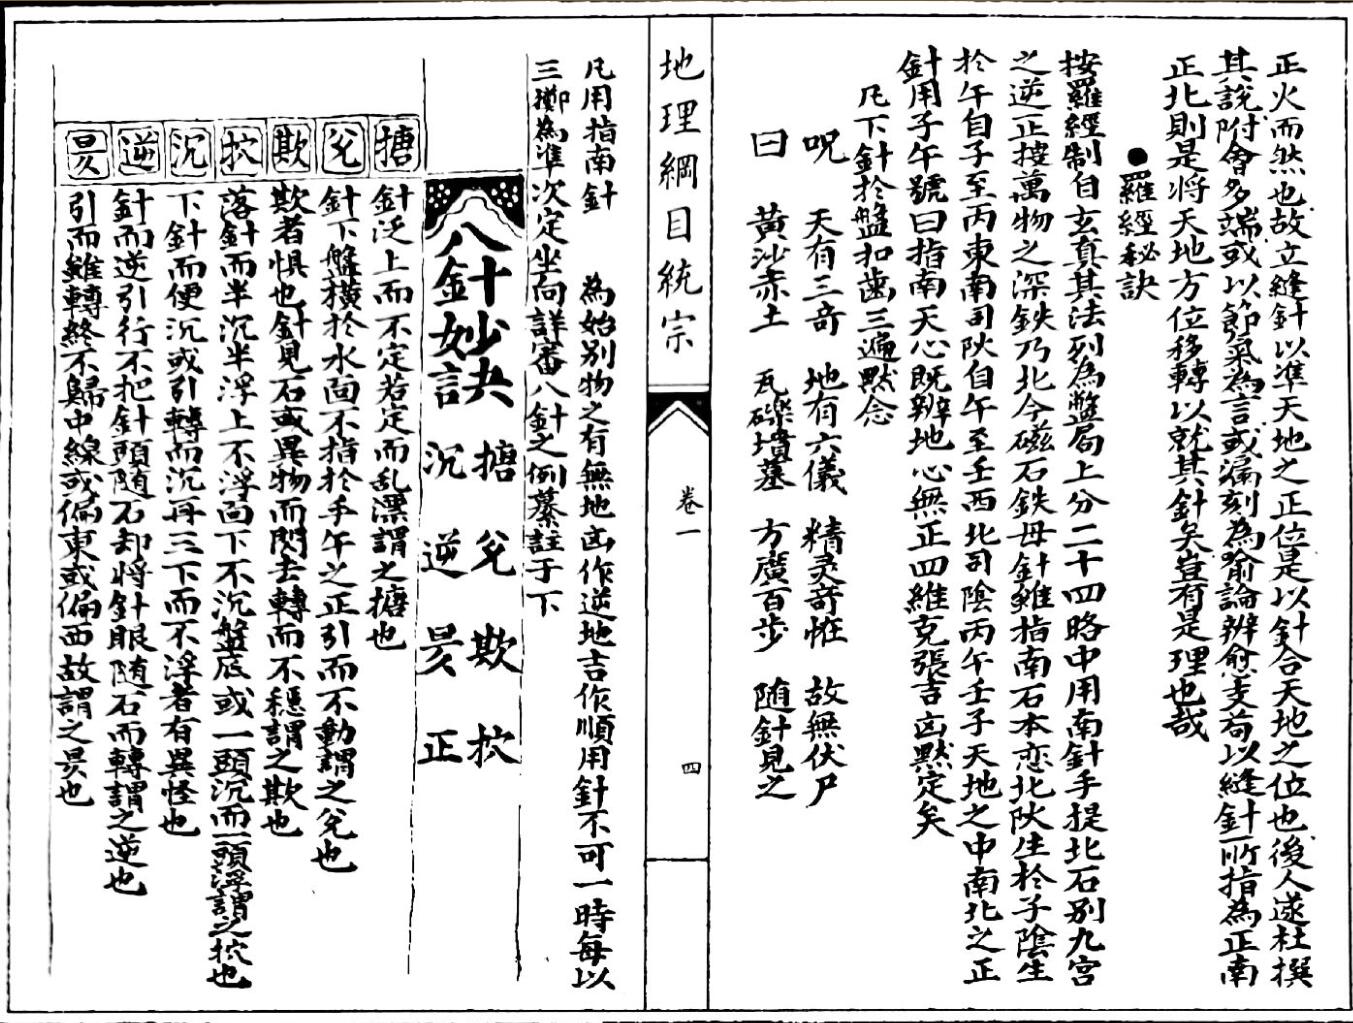 正火而然也故立縫針以準天地之正位是以針合天地之位也後人遂杜撰
其說附會多端或以節氣為言或漏刻為喻論辨愈支苟以縫針所指為正南
正北則是将天地方位移轉以就其針矣豈有是理也哉
●羅經秘訣
按羅經制自玄真其法列為盤局上分二十四略中用南針手提北石别九宮
之逆正搜萬物之深鉄乃北今磁石鉄母針雖指南石本恋北阦生於子陰生
於午自子至丙東南司阦自午至壬西北司陰丙午壬子天地之中南北之正
針用子午號曰指南天心既辨地心無正四維克張吉凶黙定矣
凡下針於盤扣齒三遍黙念
呪 天有三竒 地有六儀 精灵竒恠 故無伏尸
曰 黃沙赤土 瓦礫墳墓 方廣百步 随針見之
地理綱目統宗
卷一
四
凡用指南針 為始别物之有無地凶作逆地吉作順用針不可一時每以
三擲為準次定坐向詳審八針之例纂註于下
八針妙訣
搪 兊 欺 㧒
沉 逆 㫟 正
搪 針泛上而不定若定而乱漂謂之搪也
兊 針下盤橫於水面不指於子午之正引而不動謂之兊也
欺 欺者惧也針見石或異物而閃去轉而不穩謂之欺也
㧒 落針而半沉半浮上不浮面下不沉盤底或一頭沉而一頭浮謂之㧒也
沉 下針而便沉或引轉而沉再三下而不浮者有異怪也
逆 針而逆引行不把針頭随石却将針眼随石而轉謂之逆也
㫟 引而雖轉終不歸中線或偏東或偏西故謂之㫟也